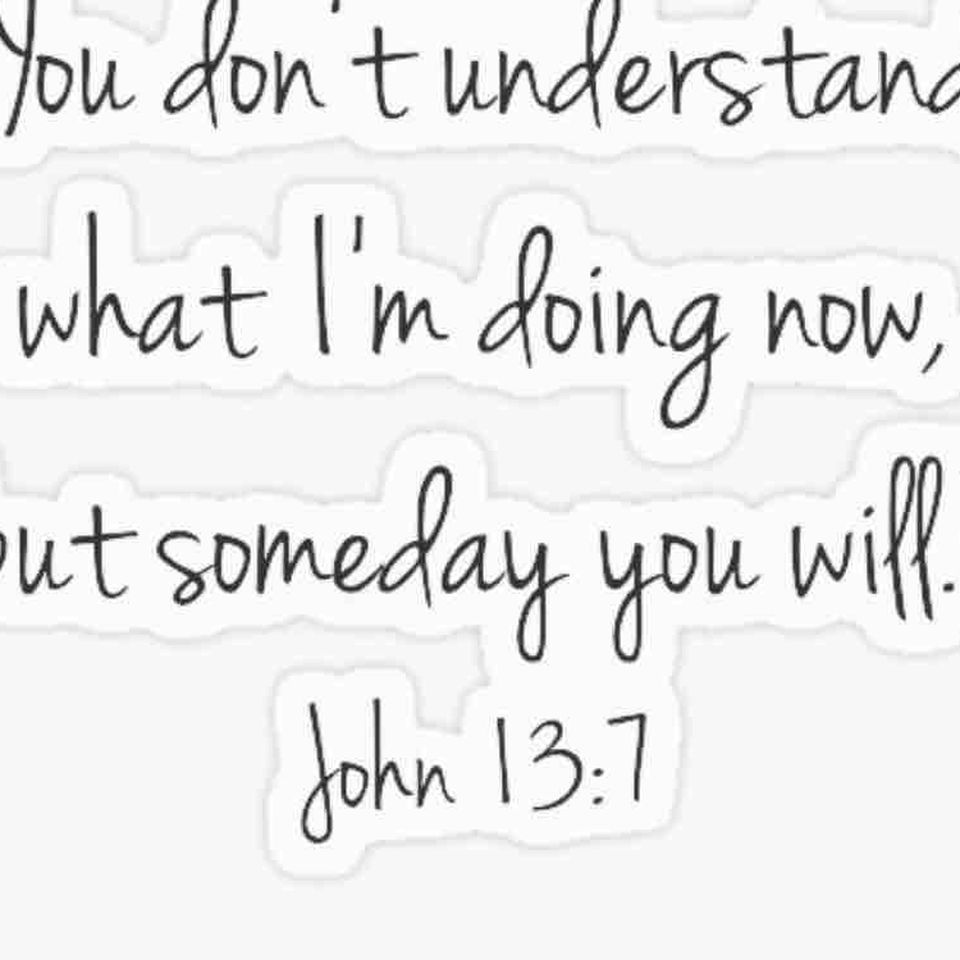 You don't understand
what I'm doing now,
but someday you will.
John 13:7